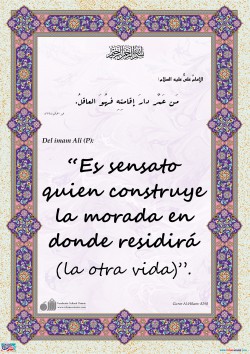 بسم الله الرحمن الرحيم
الإمام علي عليه السلام:
من عمّر دار إقامته فهو العاقل.
Del imam Ali (P):
“Es sensato
quien construye
la morada en
donde residirá
(la otra vida)”.